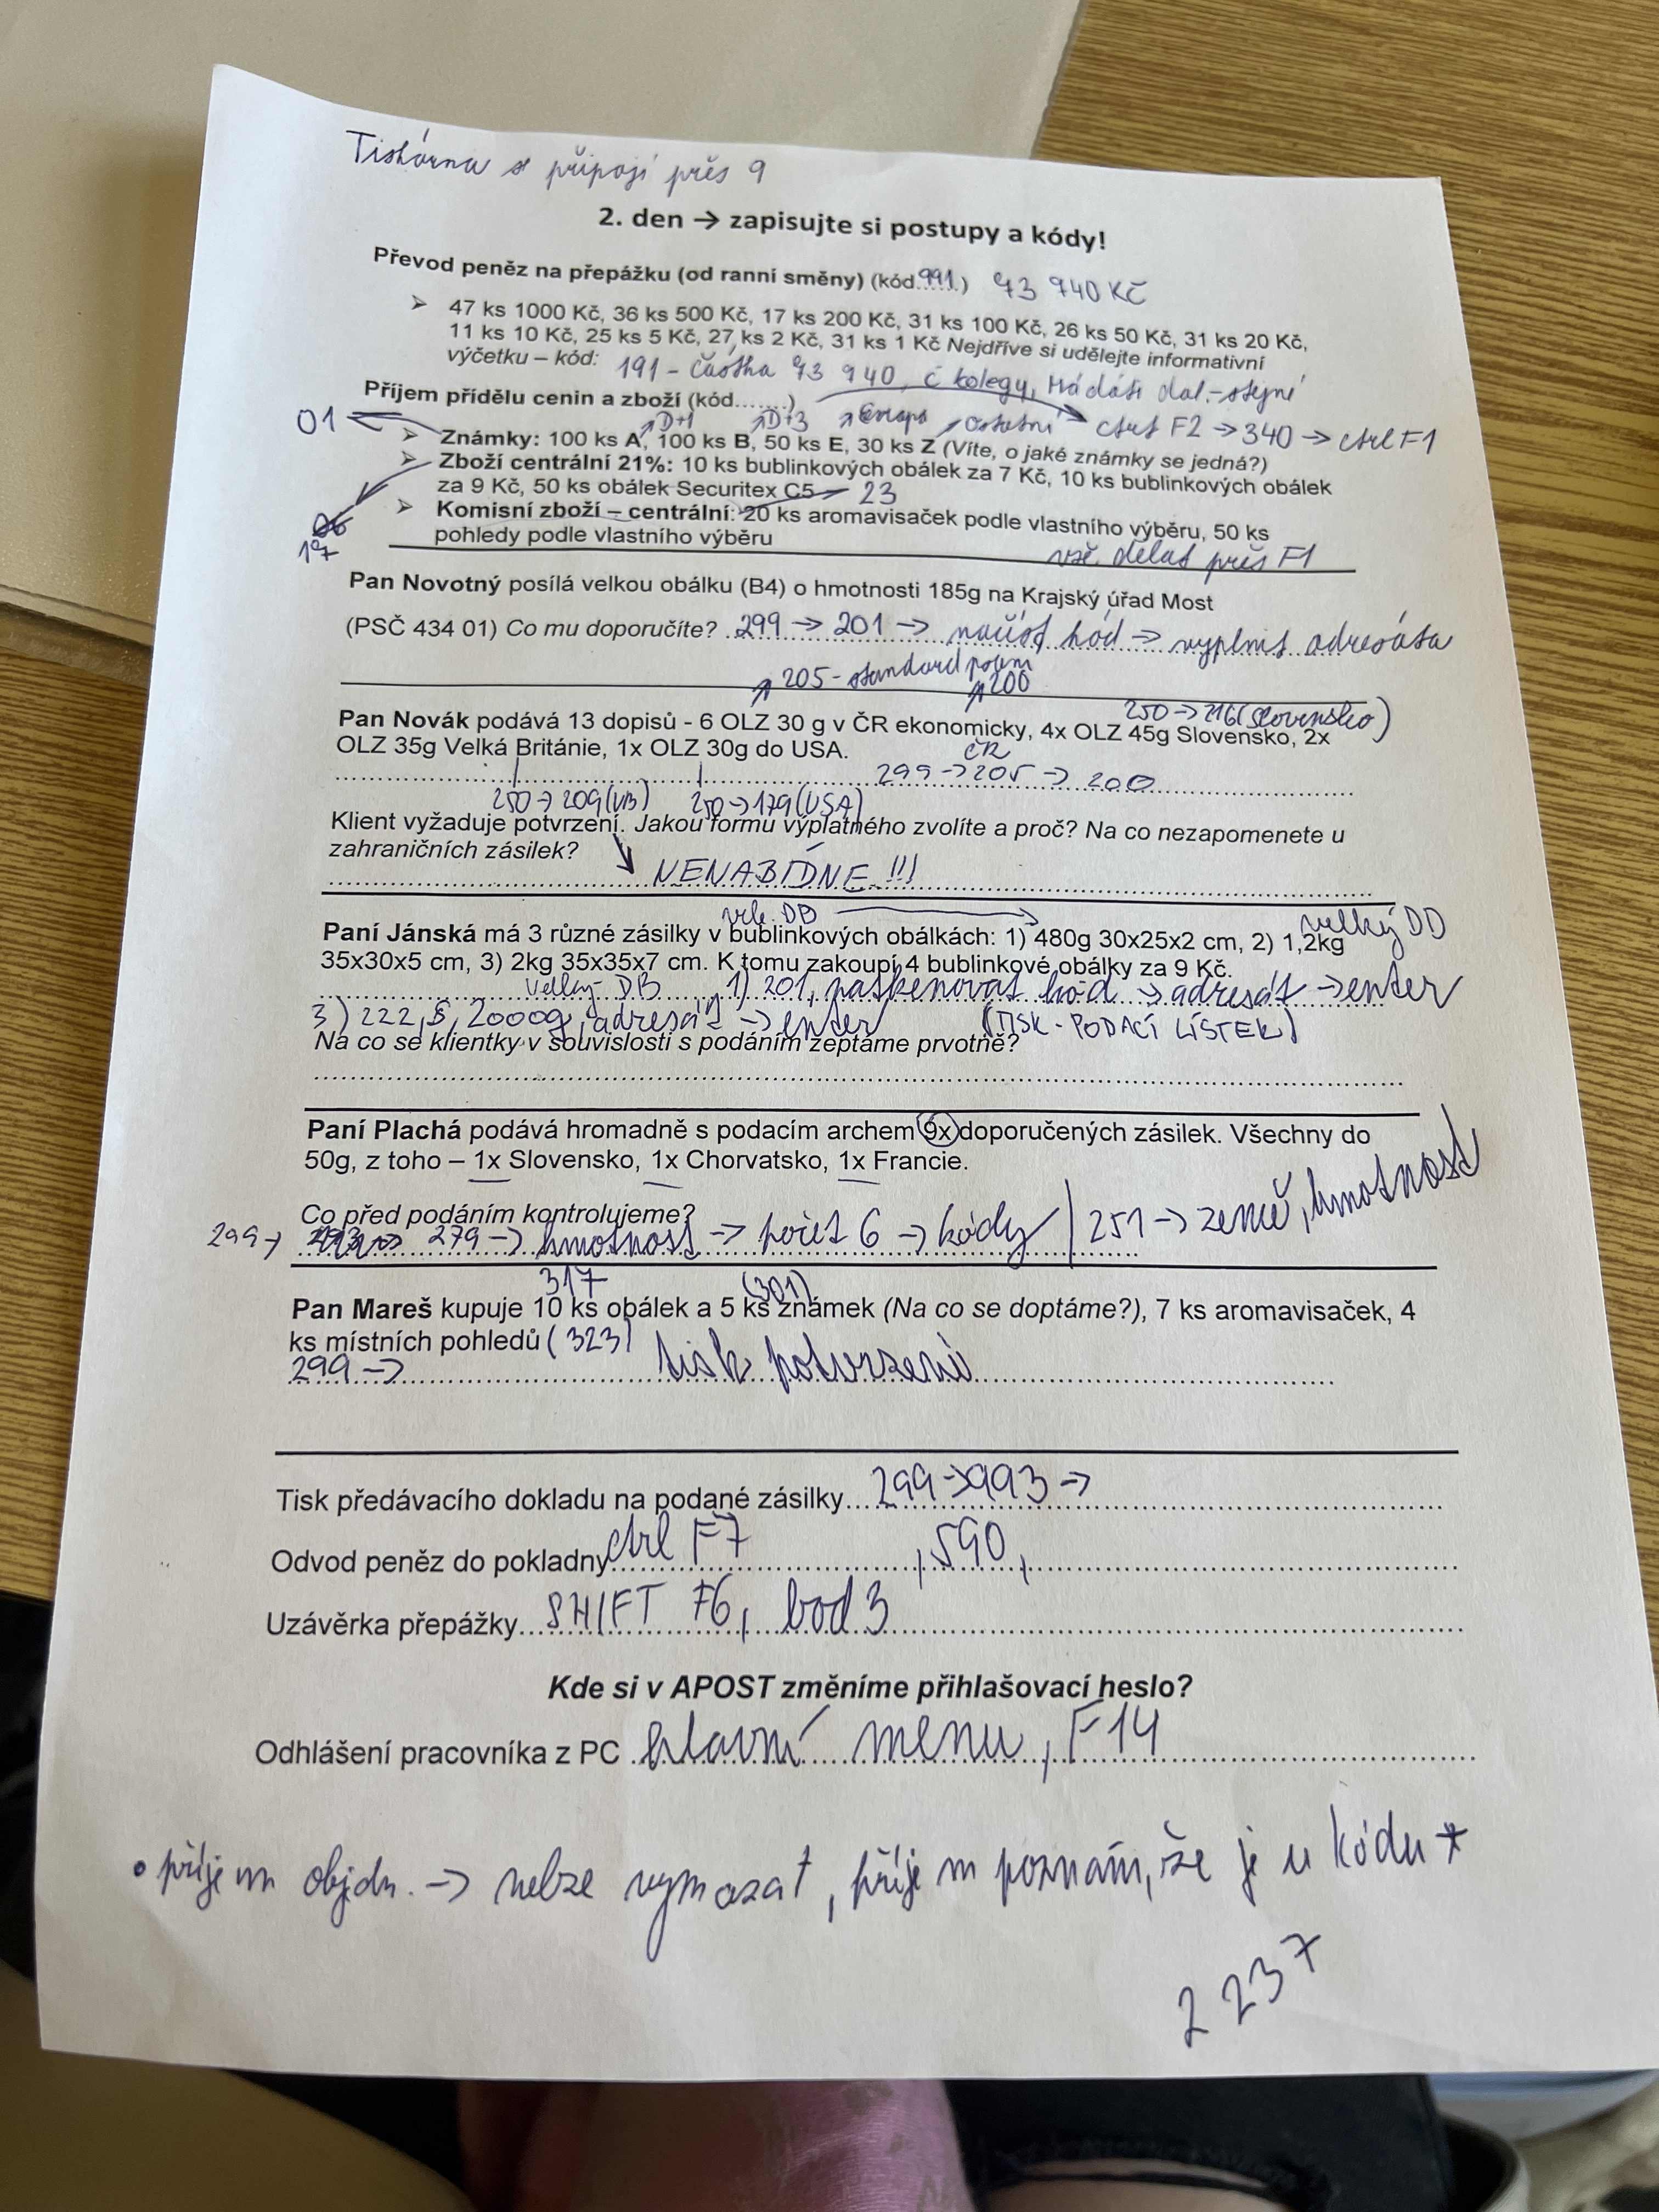 Tiskárna s připojí přes 9
2. den → zapisujte si postupy a kódy!
Převod peněz na přepážku (od ranní směny) (kód 991.) 73 940 Kč
➢ 47 ks 1000 Kč, 36 ks 500 Kč, 17 ks 200 Kč, 31 ks 100 Kč, 26 ks 50 Kč, 31 ks 20 Kč,
11 ks 10 Kč, 25 ks 5 Kč, 27 ks 2 Kč, 31 ks 1 Kč Nejdříve si udělejte informativní
výčetku – kód: 191 - částka 73 940, č kolegy,
Příjem přídělu cenin a zboží (kód........)
01 ↗D+1 ↗D+3 ↗Evropa ↗ostatní ctrl F2 → 340 → ctrl F1
➢ Známky: 100 ks A, 100 ks B, 50 ks E, 30 ks Z (Víte, o jaké známky se jedná?)
➢ Zboží centrální 21%: 10 ks bublinkových obálek za 7 Kč, 10 ks bublinkových obálek
za 9 Kč, 50 ks obálek Securitex C5 23
➢ Komisní zboží – centrální: 20 ks aromavisaček podle vlastního výběru, 50 ks
17 pohledy podle vlastního výběru
vše dělat přes F1
Pan Novotný posílá velkou obálku (B4) o hmotnosti 185g na Krajský úřad Most
(PSČ 434 01) Co mu doporučíte? 299 → 201 → načíst kód → vyplnit adresáta
↗ 205 - standard psaní
↗ 200
250 → 216 (Slovensko)
Pan Novák podává 13 dopisů - 6 OLZ 30 g v ČR ekonomicky, 4x OLZ 45g Slovensko, 2x
OLZ 35g Velká Británie, 1x OLZ 30g do USA. ČR
299 → 205 → 200
250 → 209 (VB) 250 → 179 (USA)
Klient vyžaduje potvrzení. Jakou formu výplatného zvolíte a proč? Na co nezapomenete u
zahraničních zásilek?
NENABÍDNE !!!
velk. DB → velký DD
Paní Jánská má 3 různé zásilky v bublinkových obálkách: 1) 480g 30x25x2 cm, 2) 1,2kg
35x30x5 cm, 3) 2kg 35x35x7 cm. K tomu zakoupí 4 bublinkové obálky za 9 Kč.
velký DB 1) 201, naskenovat kód → adresát → enter
3) 222, S, 2000g, adresát → enter (TISK - PODACÍ LÍSTEK)
Na co se klientky v souvislosti s podáním zeptáme prvotně?
Paní Plachá podává hromadně s podacím archem 9x doporučených zásilek. Všechny do
50g, z toho – 1x Slovensko, 1x Chorvatsko, 1x Francie.
Co před podáním kontrolujeme?
299 → 279 → hmotnost → počet 6 → kódy / 251 → země, hmotnost
317 (301)
Pan Mareš kupuje 10 ks obálek a 5 ks známek (Na co se doptáme?), 7 ks aromavisaček, 4
ks místních pohledů (323)
299 → tisk potvrzení
Tisk předávacího dokladu na podané zásilky... 299 → 993 →
Odvod peněz do pokladny ctrl F7 , 590,
Uzávěrka přepážky... SHIFT F6, bod 3
Kde si v APOST změníme přihlašovací heslo?
Odhlášení pracovníka z PC hlavní menu, F14
• příjem objedn. → nelze vymazat, příjem poznám, že je u kódu *
2 237